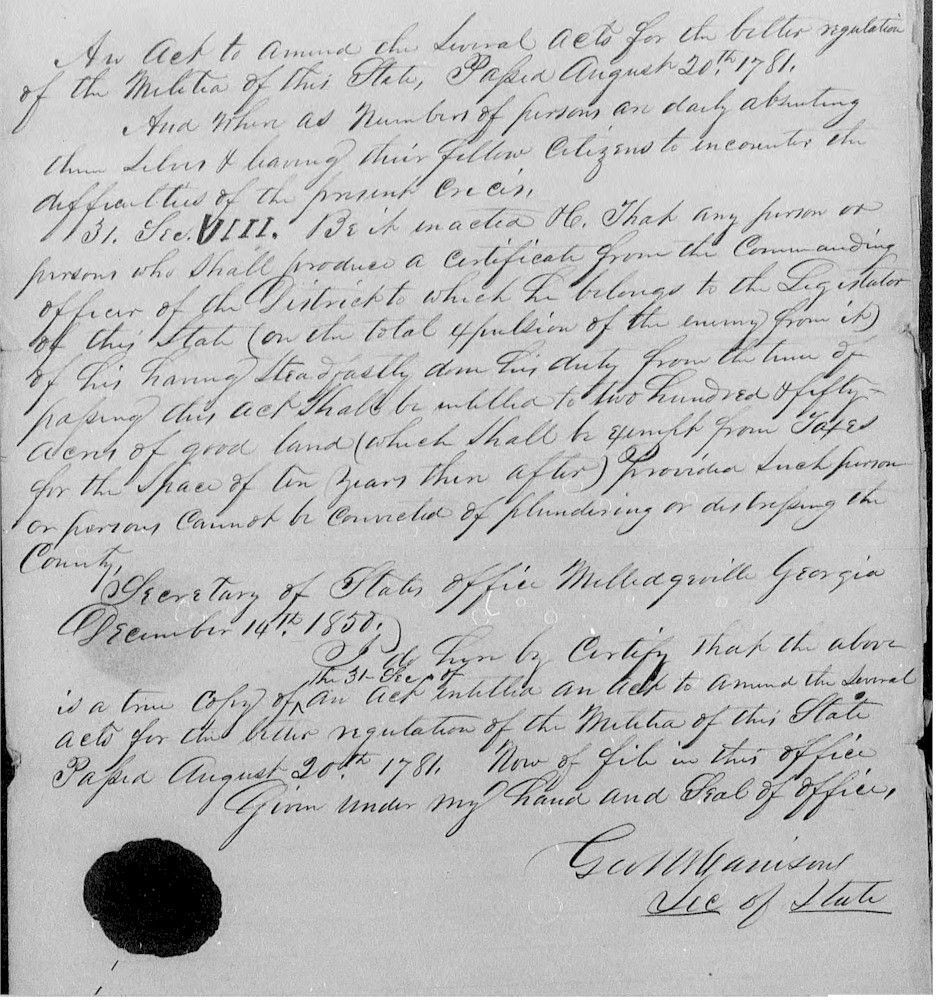 An Act to amend the Several acts for the better regulation
of the Militia of this State, Passed August 20th 1781.
And where as Numbers of persons are daily absenting
them Selves & leaving their fellow Citizens to encounter the
difficulties of the present Crecis,
31. Sec. VIII. Be it enacted &C. That any person or
persons who shall produce a Certificate from the Commanding
officer of the District to which he belongs to the Legislator
of this State (on the total expulsion of the enemy from it)
of his having Steadfastly done his duty from the time of
passing this act Shall be intitled to two hundred & fifty-
acres of good land (which Shall be exempt from Taxes
for the Space of ten Years there after) Provided Such person
or persons Cannot be Convicted of plundering or distressing the
County,
Secretary of States office Milledgeville Georgia
December 14th. 1850.
I do here by Certify that the above
the 31- Sec of
is a true Copy of an act intitled an act to amend the Several
acts for the better regulation of the Militia of this State
Passed August 20th 1781. Now of file in this office
Given under my hand and Seal of office,
Geo W Harrison
Sec of State